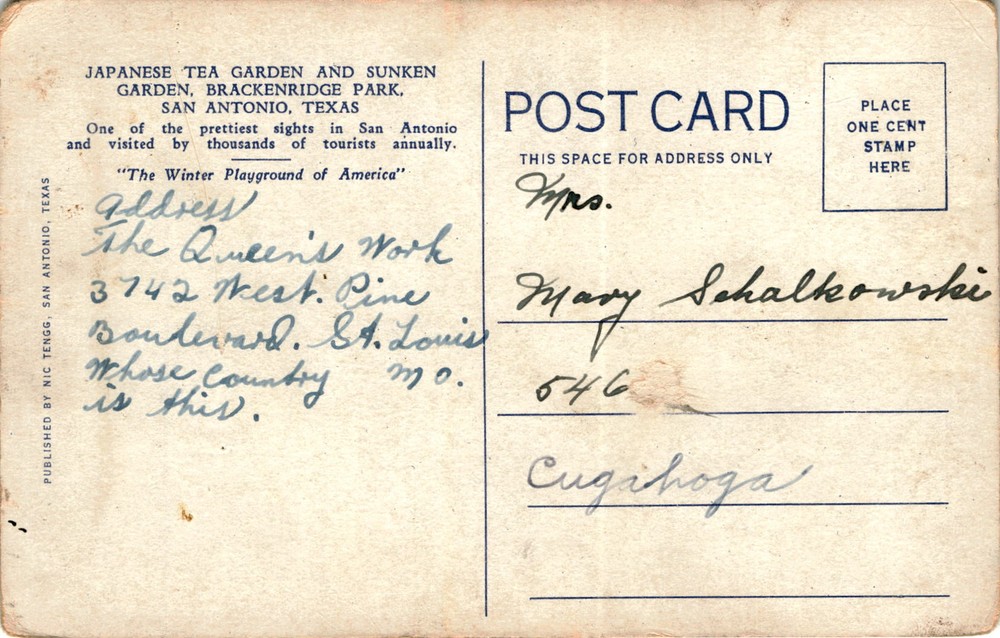 JAPANESE TEA GARDEN AND SUNKEN
GARDEN, BRACKENRIDGE PARK,
SAN ANTONIO, TEXAS
One of the prettiest sights in San Antonio
and visited by thousands of tourists annually.
"The Winter Playground of America"
Address
The Queen's Work
3742 West. Pine
Boulevard. St. Louis
Whose Country Mo.
is this.
PUBLISHED BY NIC TENGG, SAN ANTONIO, TEXAS
POST CARD
THIS SPACE FOR ADDRESS ONLY
PLACE
ONE CENT
STAMP
HERE
Mrs.
Mary Schalkowski
546
Cugahoga